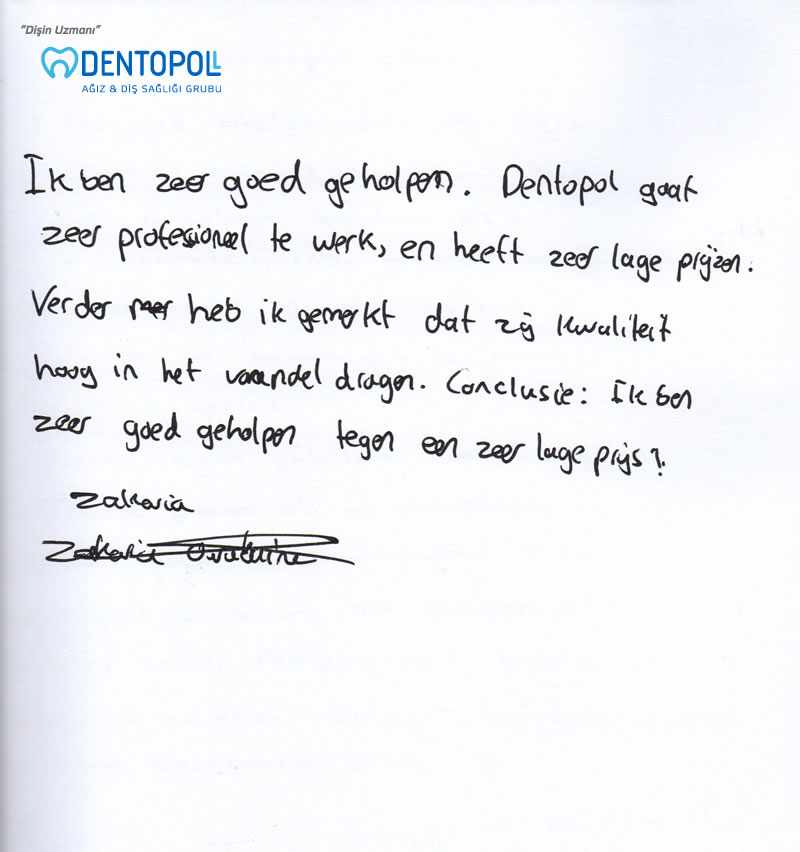 "Dişin Uzmanı"
DENTOPOLL
AĞIZ & DİŞ SAĞLIĞI GRUBU
Ik ben zeer goed geholpen. Dentopol gaat
zeer professioneel te werk, en heeft zeer lage prijzen.
Verder heb ik gemerkt dat zij kwaliteit
hoog in het vaandel dragen. Conclusie: Ik ben
zeer goed geholpen tegen een zeer lage prijs!
Zakaria
Zakaria